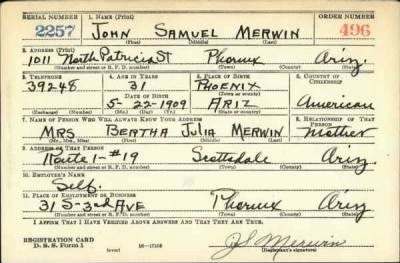 SERIAL NUMBER 1. NAME (Print) ORDER NUMBER
2257 JOHN SAMUEL MERWIN 496
(First) (Middle) (Last)
2. ADDRESS (Print)
1011 North Patricia St Phoenix Ariz.
(Number and street or R. F. D. number) (Town) (County) (State)
3. TELEPHONE 4. AGE IN YEARS 5. PLACE OF BIRTH 6. COUNTRY OF CITIZENSHIP
39248 31 PHOENIX
DATE OF BIRTH (Town or county)
5-22-1909 ARIZ American
(Exchange) (Number) (Mo.) (Day) (Yr.) (State or country)
7. NAME OF PERSON WHO WILL ALWAYS KNOW YOUR ADDRESS 8. RELATIONSHIP OF THAT PERSON
MRS BERTHA JULIA MERWIN Mother
(Mr., Mrs., Miss) (First) (Middle) (Last)
9. ADDRESS OF THAT PERSON
Route 1-#19 Scottsdale Ariz.
(Number and street or R. F. D. number) (Town) (County) (State)
10. EMPLOYER'S NAME
Self.
11. PLACE OF EMPLOYMENT OR BUSINESS
31 S-3rd AVE Phoenix Ariz
(Number and street or R. F. D. number) (Town) (County) (State)
I AFFIRM THAT I HAVE VERIFIED ABOVE ANSWERS AND THAT THEY ARE TRUE.
REGISTRATION CARD
D. S. S. Form 1 (over) 16-17105 JS Merwin
(Registrant's signature)